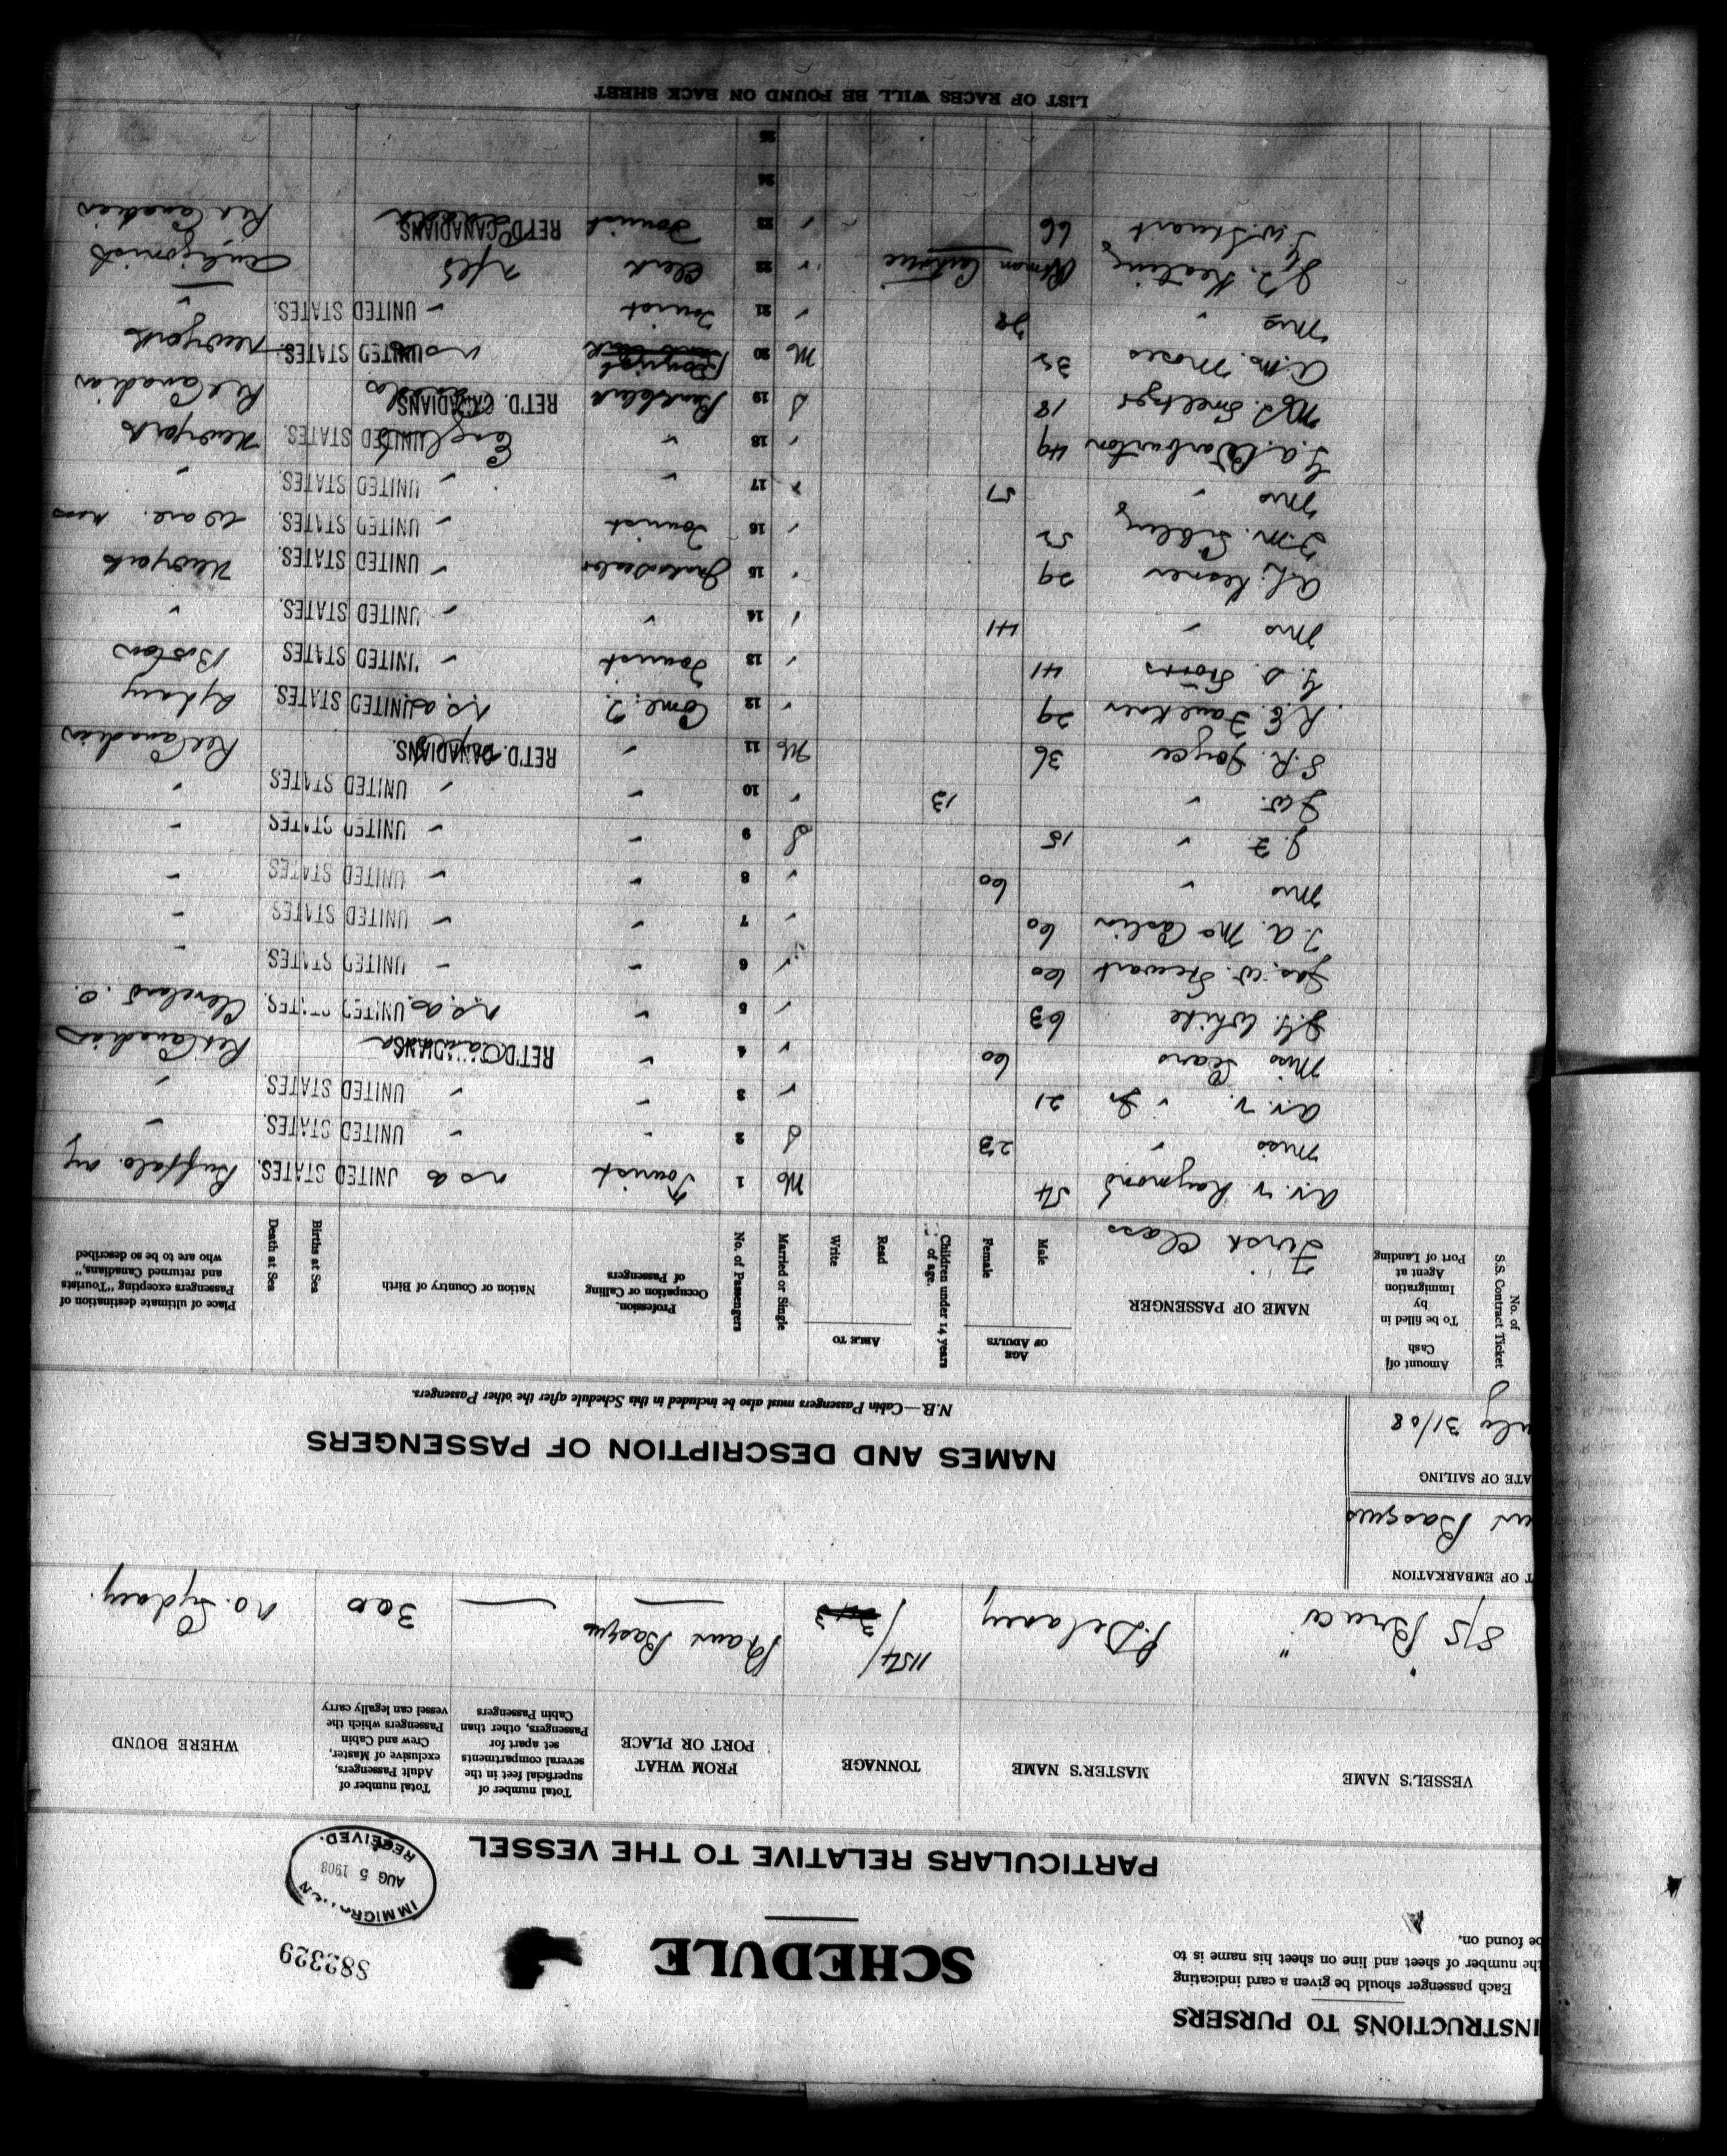 INSTRUCTIONS TO PURSERS
Each passenger should be given a card indicating
the number of sheet and line on sheet his name is to
be found on.
SCHEDULE
S82329
IMMIGRATION
AUG 5 1908
RECEIVED.
PARTICULARS RELATIVE TO THE VESSEL
VESSEL'S NAME
MASTER'S NAME
TONNAGE
FROM WHAT PORT OR PLACE
Total number of superficial feet in the several compartments set apart for Passengers, other than Cabin Passengers
Total number of Adult Passengers, exclusive of Master, Crew and Cabin Passengers which the vessel can legally carry
WHERE BOUND
S/S "Bruce" P. Delaney 1154/ Port aux Basques — 300 No. Sydney.
T OF EMBARKATION
aux Basques
ATE OF SAILING
uly 31/08
NAMES AND DESCRIPTION OF PASSENGERS
N.B.—Cabin Passengers must also be included in this Schedule after the other Passengers.
No. of S.S. Contract Ticket
Amount of Cash To be filled in by Immigration Agent at Port of Landing
NAME OF PASSENGER
AGE OF ADULTS
Male
Female
Children under 14 years of age.
ABLE TO
Read
Write
Married or Single
No. of Passengers
Profession, Occupation or Calling of Passengers
Nation or Country of Birth
Births at Sea
Death at Sea
Place of ultimate destination of Passengers excepting "Tourists and returned Canadians," who are to be so described
First Class
A.V.V. Raymond 54 M 1 Tourist USA UNITED STATES. Buffalo NY
Miss " 23 S 2 " " UNITED STATES. "
A.V.V. " Jr 21 " 3 " " UNITED STATES. "
Miss Sears 60 " 4 " Canada RET'D CANADIANS Ret Canadian
J.G. White 63 " 5 " U.S.A. UNITED STATES. Cleveland. O.
Jas. W. Stewart 60 " 6 " " UNITED STATES. "
J.A. McCaslin 60 " 7 " " UNITED STATES "
Mrs " 60 " 8 " " UNITED STATES "
J.F. " 15 S 9 " " UNITED STATES "
J.W. " 13 " 10 " " UNITED STATES "
S.R. Joyce 36 M 11 " RET'D. CANADIANS. Ret Canadian
R.E. Faulkner 29 " 12 Com'l T. U.S.A. UNITED STATES. Sydney
G.S. 41 " 13 Tourist " UNITED STATES Boston
Mrs " 41 " 14 " " UNITED STATES. "
A.L. 29 " 15 " UNITED STATES. New York
F.M. Sibley 52 " 16 Tourist " UNITED STATES. Ware. Mass
Mrs " 51 " 17 " " UNITED STATES. "
G.A. Warburton 49 " 18 " England UNITED STATES. New York
M.J. Smeltzer 18 S 19 Bank clerk Canada RET'D. CANADIANS Ret Canadian
A.M. Moses 35 M 20 Tourist USA UNITED STATES. New York
Mrs " 28 " 21 Tourist " UNITED STATES. "
J.J. Keating Roman Catholic " 22 Clerk Nfld Antigonish
J.W. Stuart 66 " 23 Tourist Canada RET'D. CANADIANS Ret Canadian
24
25
LIST OF RACES WILL BE FOUND ON BACK SHEET